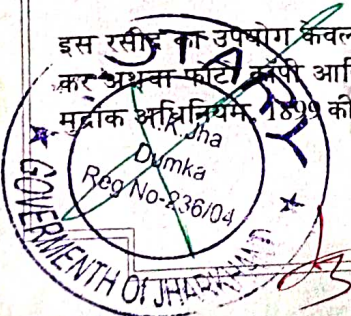 इस रसीद का उपयोग केवल
कर अथवा फोटो कॉपी आदि
मुद्रांक अधिनियम, 1899 की
NOTARY
K. Jha
Dumka
Reg No-236/04
GOVERMENTH OF JHARKHAND